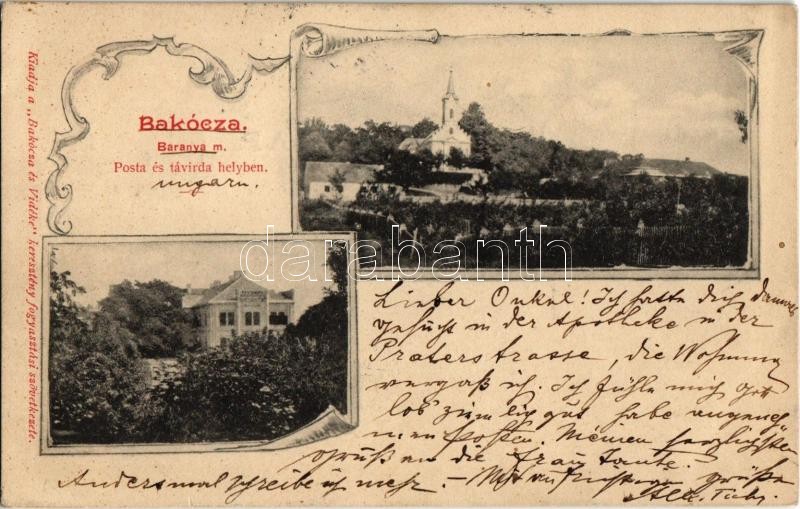 Bakócza.
Baranya m.
Posta és távirda helyben.
ungarn.
Kiadja a „Bakócza és Vidéke" keresztény fogyasztási szövetkezete.
darabanth
Lieber Onkel! Ich hatte dich damals
gesucht in der Apotheke in der
Praterstrasse, die Wohnung
vergaß ich. Ich fühle mich Gott
lob ziemlich gut habe angeneh
men Posten. Meinen herzlichsten
Gruß an die Frau Tante. –
Andersmal schreibe ich mehr. – Mit aufrichtigen Grüßen